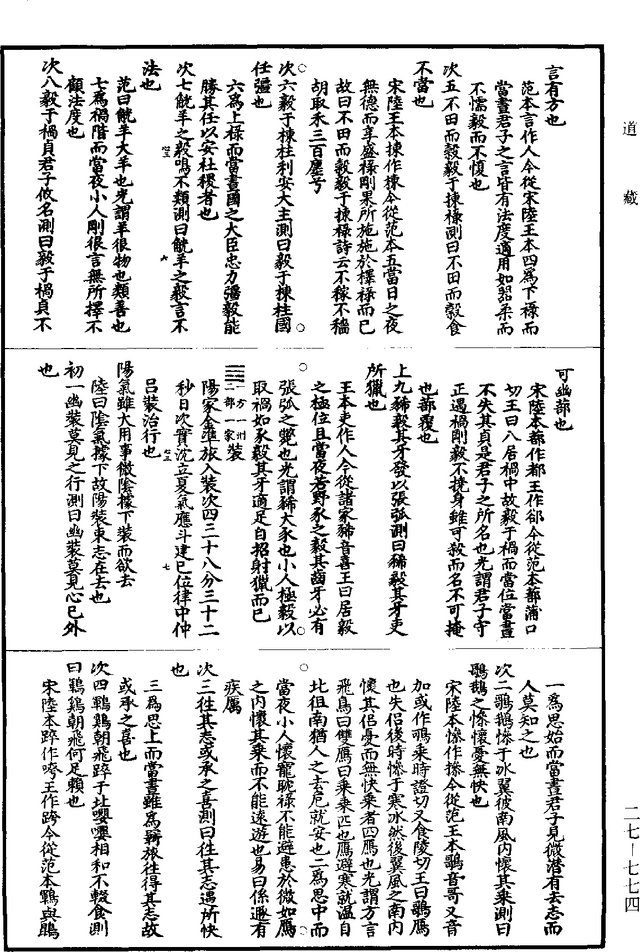 言有方也
范本言作人今從宋陸王本四爲下祿而
當晝君子之言皆有法度適用如器柔而
不懦毅而不愎也
次五不田而穀毅于揀祿測曰不田而穀食
不當也
宋陸王本揀作棟今從范本五當日之夜
無德而享盛祿剛果所施施於擇祿而已
故曰不田而穀毅于揀祿詩云不稼不穡
胡取禾三百廛兮
次六毅于棟柱利安大主測曰毅于棟柱國
任彊也
六爲上祿而當晝國之大臣忠力彊毅能
勝其任以安社稷者也
次七觥羊之毅鳴不類測曰觥羊之毅言不
法也
范曰觥羊大羊也光謂羊很物也類善也
七爲禍階而當夜小人剛很言無所擇不
顧法度也
次八毅于禍貞君子攸名測曰毅于禍貞不
可幽蔀也
宋陸本蔀作都王作郤今從范本蔀蒲口
切王曰八居禍中故毅于禍而當位當晝
不失其貞是君子之所名也光謂君子守
正遇禍剛毅不撓身雖可殺而名不可掩
也蔀覆也
上九豨毅其牙發以張弧測曰豨毅其牙吏
所獵也
王本吏作人今從諸家豨音喜王曰居毅
之極位且當夜若野豕之毅其齒牙必有
張弧之斃也光謂豨大豕也小人極毅以
取禍如豕毅其牙適足自招射獵而已
一方一州二部一家 裝
陽家金準旅入裝次四三十八分三十二
秒日次實沈立夏氣應斗建巳位律中仲
呂裝治行也
陽氣雖大用事微陰據下裝而欲去
陸曰陰氣據下故陽裝束志在去也
初一幽裝莫見之行測曰幽裝莫見心巳外
也
一爲思始而當晝君子見微潛有去志而
人莫知之也
次二鶂鵝慘于冰翼彼南風內懷其乘測曰
鶂鵝之慘懷憂無快也
宋陸本慘作摻今從范王本鶂音哥又音
加或作鳴乘時證切又食陵切王曰鶂鴈
也失侶後時慘于寒冰然後翼風之南內
懷其侶憂而無快乘者四鴈也光謂方言
飛鳥曰雙鴈曰乘乘匹也鴈避寒就溫自
北徂南猶人之去危就安也二爲思中而
當夜小人懷寵耽祿不能避患於微如鴈
之內懷其乘而不能遠遊也易曰係遯有
疾厲
次三往其志或承之喜測曰往其志遇所快
也
三爲思上而當晝雖爲羇旅往得其志故
或承之喜也
次四鶤鷄朝飛踤于北嚶嚶相和不輟食測
曰鶤鷄朝飛何足賴也
宋陸本踤作崪王作跨今從范本鶤與鵾
道藏
二七—七七四